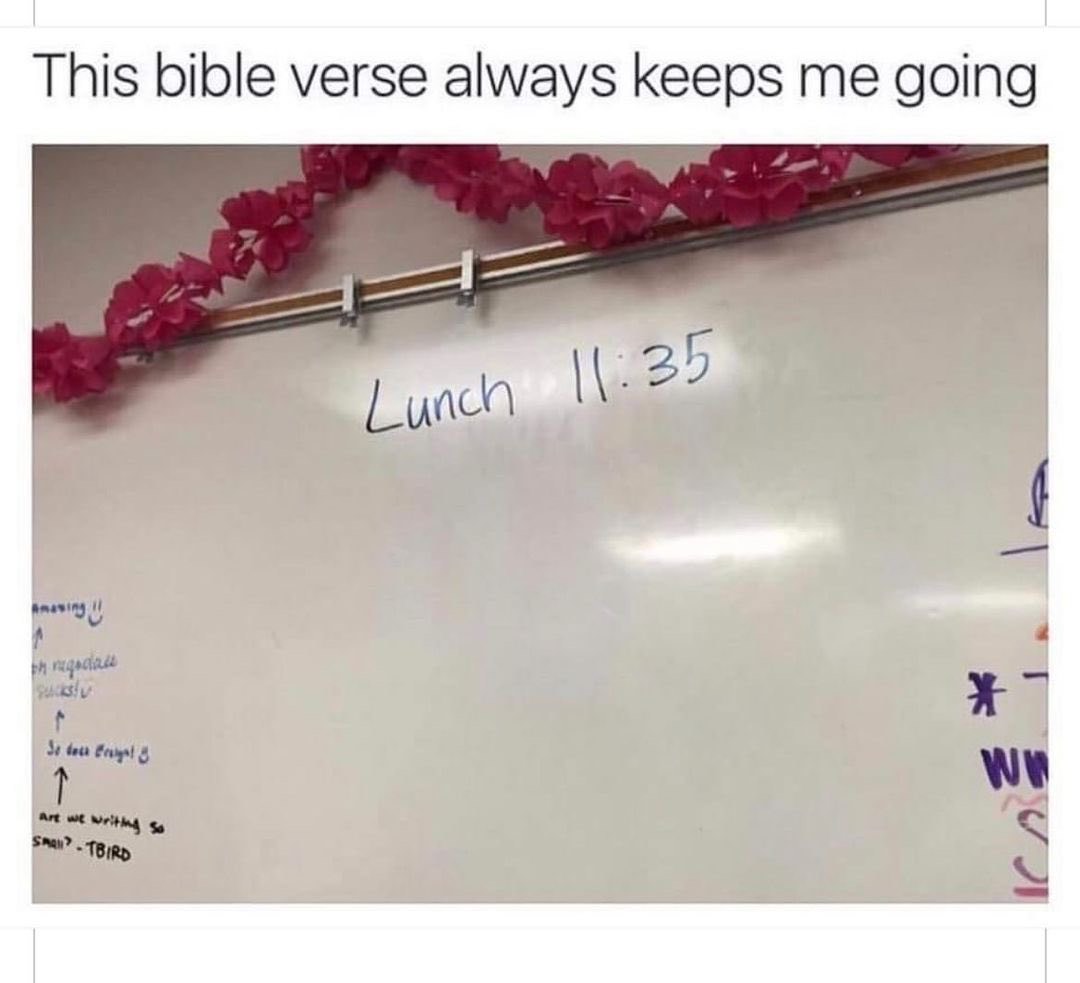 This bible verse always keeps me going
Lunch 11:35
Amazing !!
sucks!
So does
are we writing so
small? - TBIRD
*